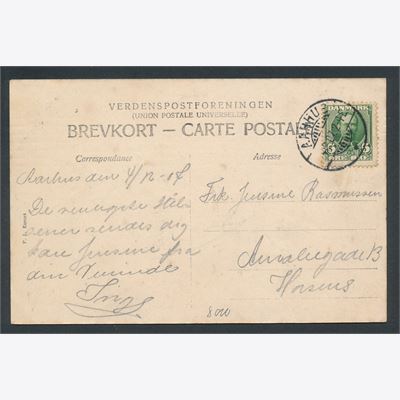 VERDENSPOSTFORENINGEN
(UNION POSTALE UNIVERSELLE)
BREVKORT — CARTE POSTAL
DANMARK
5 5
AARHUS
Correspondance
Adresse
Aarhus den 4/12-07
De venligste Hil
sener sendes dig
kære Jensine fra
din Veninde
Frk. Jensine Rasmussen
Horsens
8000